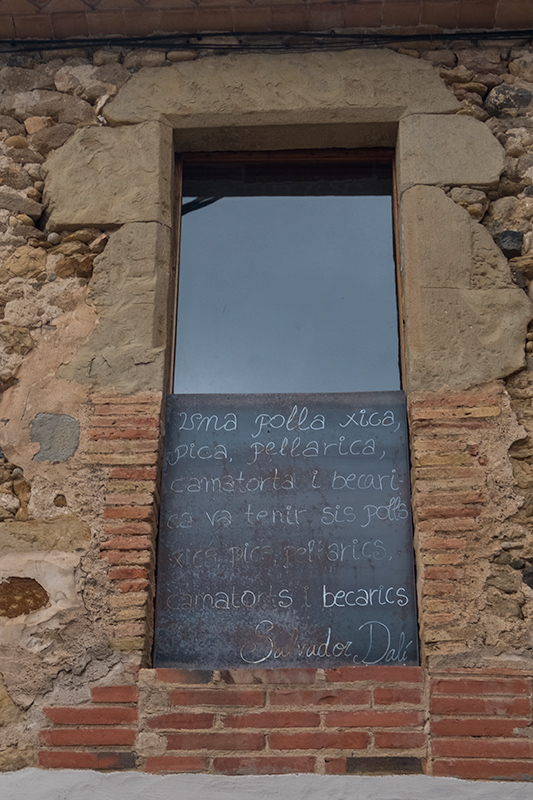 Una polla xica,
pica, pellarica,
camatorta i becari-
ca va tenir sis polls
xics, pics, pellarics,
camatorts i becarics
Salvador Dalí